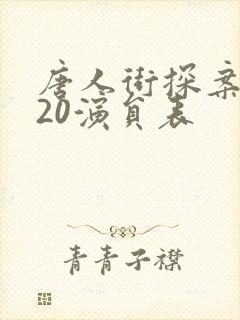 唐人街探案
20演员表
青青子襟